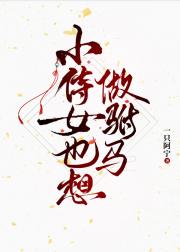 小侍女也想
做驸马
一只阿宁 著